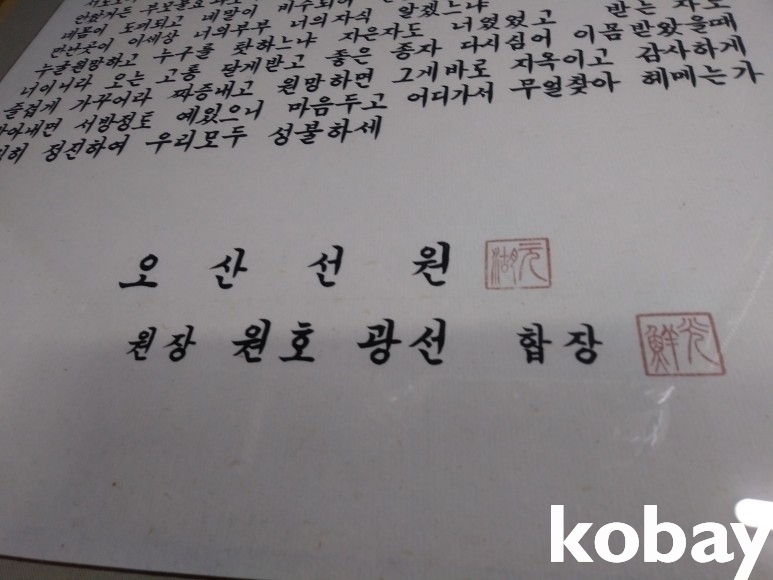 네몸이 도끼되고 네말이 비수되어
만난곳이 이세상 너의부부 너의자식 알겠느냐 받는 자도
누굴원망하고 누구를 탓하느냐 지은자도 너였었고
너이니라 오는 고통 달게받고 좋은 종자 다시심어 이몸 받았을때
즐겁게 가꾸어라 짜증내고 원망하면 그게바로 지옥이고 감사하게
받아내면 서방정토 예있으니 마음두고 어디가서 무얼찾아 헤메는가
정진하여 우리모두 성불하세
오 산 선 원 元 湖
원장 원호 광선 합장 光 鮮
kobay